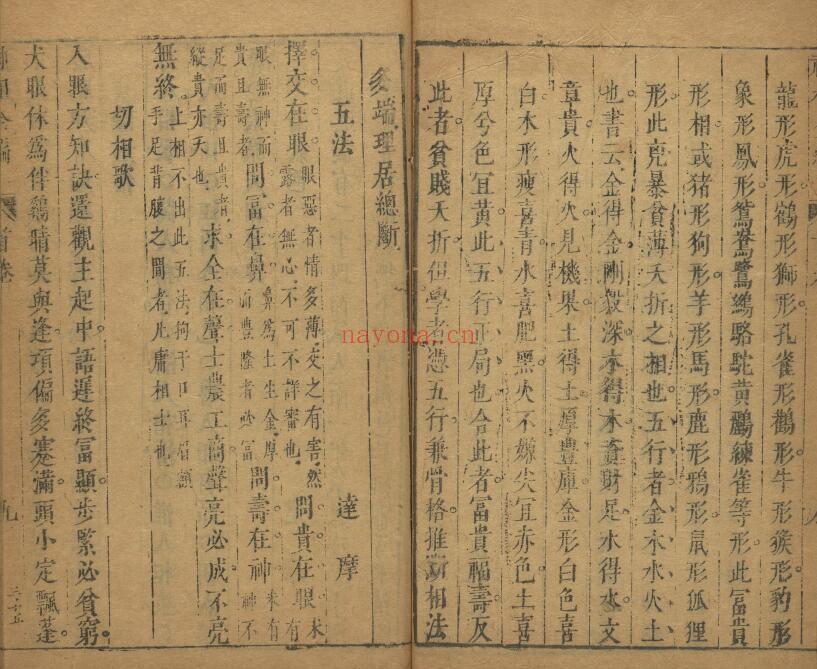 龍形虎形鶴形獅形孔雀形鸛形牛形猴形豹形
象形鳳形鴛鴦鷺鷀駱駝黃鸝練雀等形此富貴
形相或猪形狗形羊形馬形鹿形鴉形鼠形狐狸
形此兇暴貧薄夭折之相也五行者金木水火土
也書云金得金剛毅深木得木資財足水得水文
章貴火得火見機果土得土厚豐庫金形白色喜
白木形瘦喜青水喜肥黑火不嫌尖宜赤色土喜
厚兮色宜黃此五行正局也合此者富貴福壽反
此者貧賤夭折但學者憑五行兼骨格推斷相法
多端理居總斷
五法
達摩
擇交在眼眼惡者情多薄交之有害然露者無心不可不詳審也問貴在眼未有
眼無神而貴且壽者問富在鼻鼻爲土生金厚而豐隆者必富問壽在神未有神不
足而壽且貴者縱貴亦夭也求全在聲士農工商聲亮必成不亮
無終上相不出此五法拘于口耳眉額手足背腹之間者凡庸相士也
切相歌
入眼方知訣還觀主起中語遲終富顯步緊必貧窮
犬眼休爲伴鷄睛莫與逢項偏多蹇滿頭小定飄蓬
首卷
九
三十五
nayona.cn